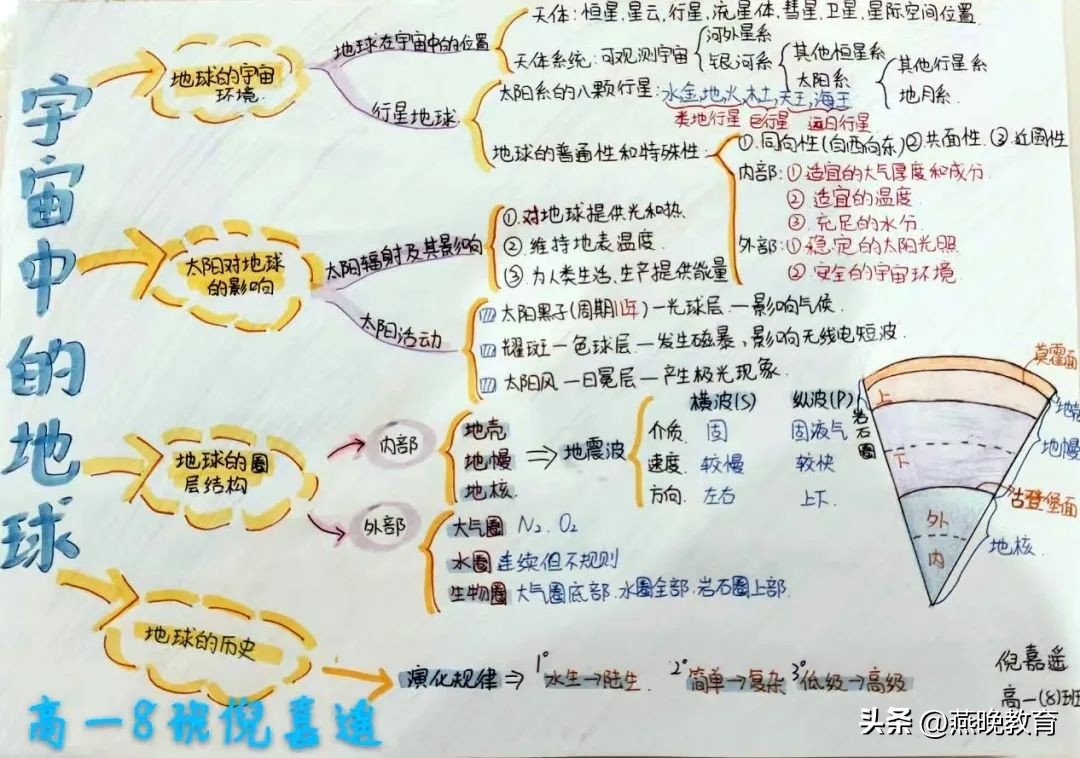 宇宙中的地球
地球的宇宙
环境.
地球在宇宙中的位置
天体: 恒星,星云,行星,流星体,彗星,卫星,星际空间位置.
天体系统: 可观测宇宙
河外星系
银河系
其他恒星系
太阳系
其他行星系
地月系.
行星地球.
太阳系的八颗行星:水金,地,火,木土,天王,海王
类地行星 巨行星 远日行星
地球的普通性和特殊性:
①.同向性(自西向东)②.共面性.③.近圆性
内部:①适宜的大气厚度和成分.
② 适宜的温度.
③. 充足的水分.
外部:①稳定的太阳光照
② 安全的宇宙环境.
太阳对地球
的影响
太阳辐射及其影响
①.对地球提供光和热.
②.维持地表温度.
③.为人类生活,生产提供能量
太阳活动
太阳黑子(周期11年)一光球层.一影响气候.
耀斑一色球层.一发生磁暴、影响无线电短波.
太阳风 一日冕层一产生极光现象.
地球的圈
层结构
内部
地壳
地幔
地核.
⇒地震波
横波(S) 纵波(P)
介质. 固 固液气
速度. 较慢 较快
方向. 左右 上下.
外部
大气圈 N₂.O₂
水圈 连续但不规则
生物圈 大气圈底部.水圈全部.岩石圈上部.
莫霍面
上
岩石圈
地壳
地幔
下
古登堡面
外
内
地核.
地球的历史
演化规律⇒ 1°水生→陆生. 2°简单→复杂 3°低级→高级
倪嘉遥
高一(8)班
高一8班倪嘉遥
头条 @燕晚教育